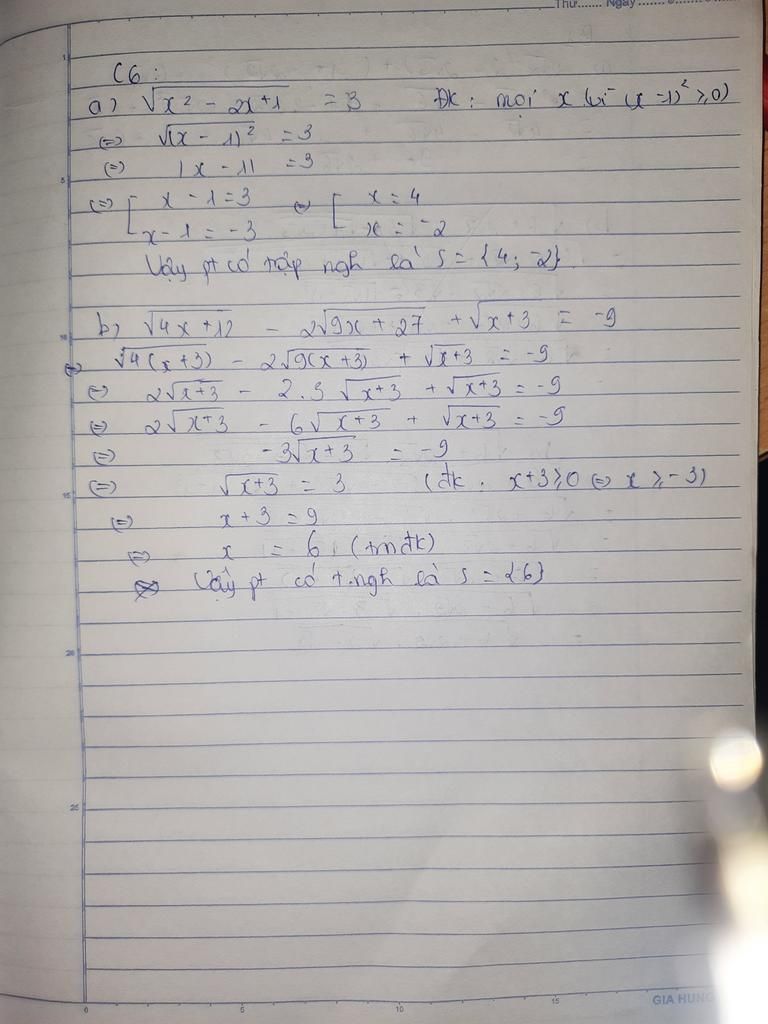 Thứ....... Ngày.......
C6:
a) √(x² - 2x + 1) = 3 ĐK: mọi x (vì (x - 1)² ≥ 0)
(=) √((x - 1)²) = 3
(=) |x - 1| = 3
(=) [ x - 1 = 3 (=) [ x = 4
x - 1 = -3 x = -2
Vậy pt có tập ngh là S = {4; -2}
b) √(4x + 12) - 2√(9x + 27) + √(x + 3) = -9
(=) √(4(x + 3)) - 2√(9(x + 3)) + √(x + 3) = -9
(=) 2√(x + 3) - 2.3√(x + 3) + √(x + 3) = -9
(=) 2√(x + 3) - 6√(x + 3) + √(x + 3) = -9
(=) -3√(x + 3) = -9
(=) √(x + 3) = 3 (đk: x + 3 ≥ 0 (=) x ≥ -3)
(=) x + 3 = 9
(=) x = 6 (tmđk)
Vậy pt có t.ngh là S = {6}
1
5
10
15
20
25
0 5 10 15
GIA HUNG